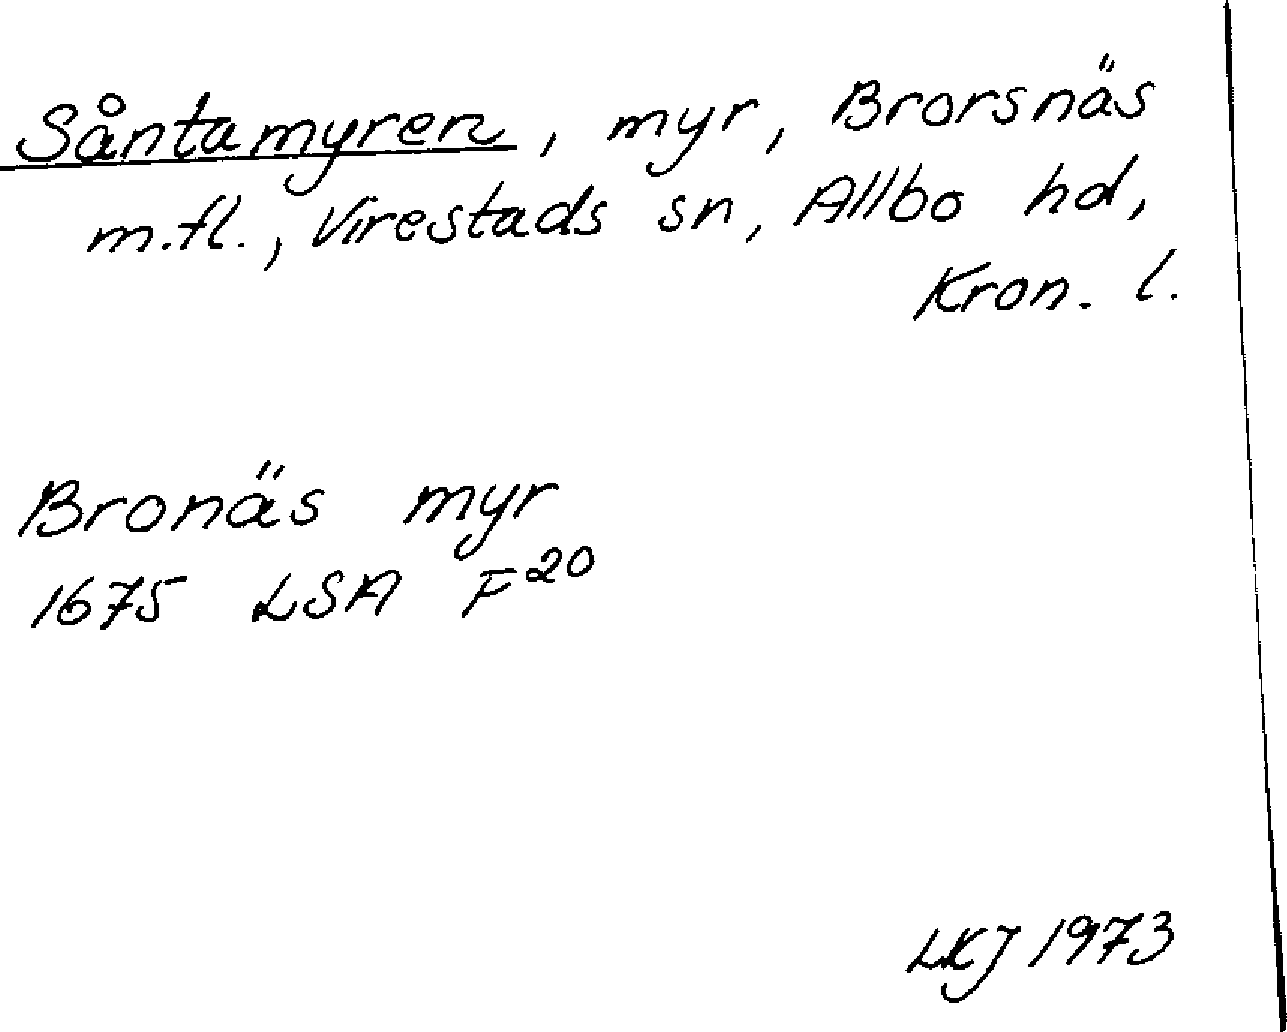 Såntamyren, myr, Brorsnäs
m.fl., Virestads sn, Allbo hd,
Kron. l.
Bronäs myr
1675 LSA F²⁰
LKJ 1973